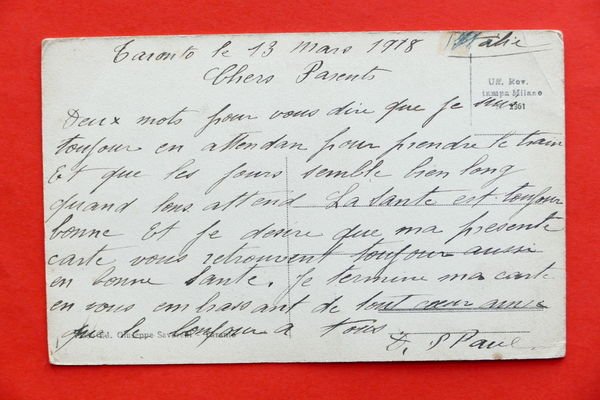 Taronto le 13 mars 1918 Italie
Uff. Rev.
Stampa Milano
2361
Chers Parents
Deux mots pour vous dire que je suis
toujour en attendan pour prendre le train
Et que les jours semble bien long
quand lons attend La sante est toujour
bonne Et je desire que ma presente
carte vous retrouvent toujour aussi
en bonne Sante. Je termine ma carte
en vous embrassant de tout cœur ainsi
que le bonjour a tous
Ed. Giuseppe Taranto
D. S Paul